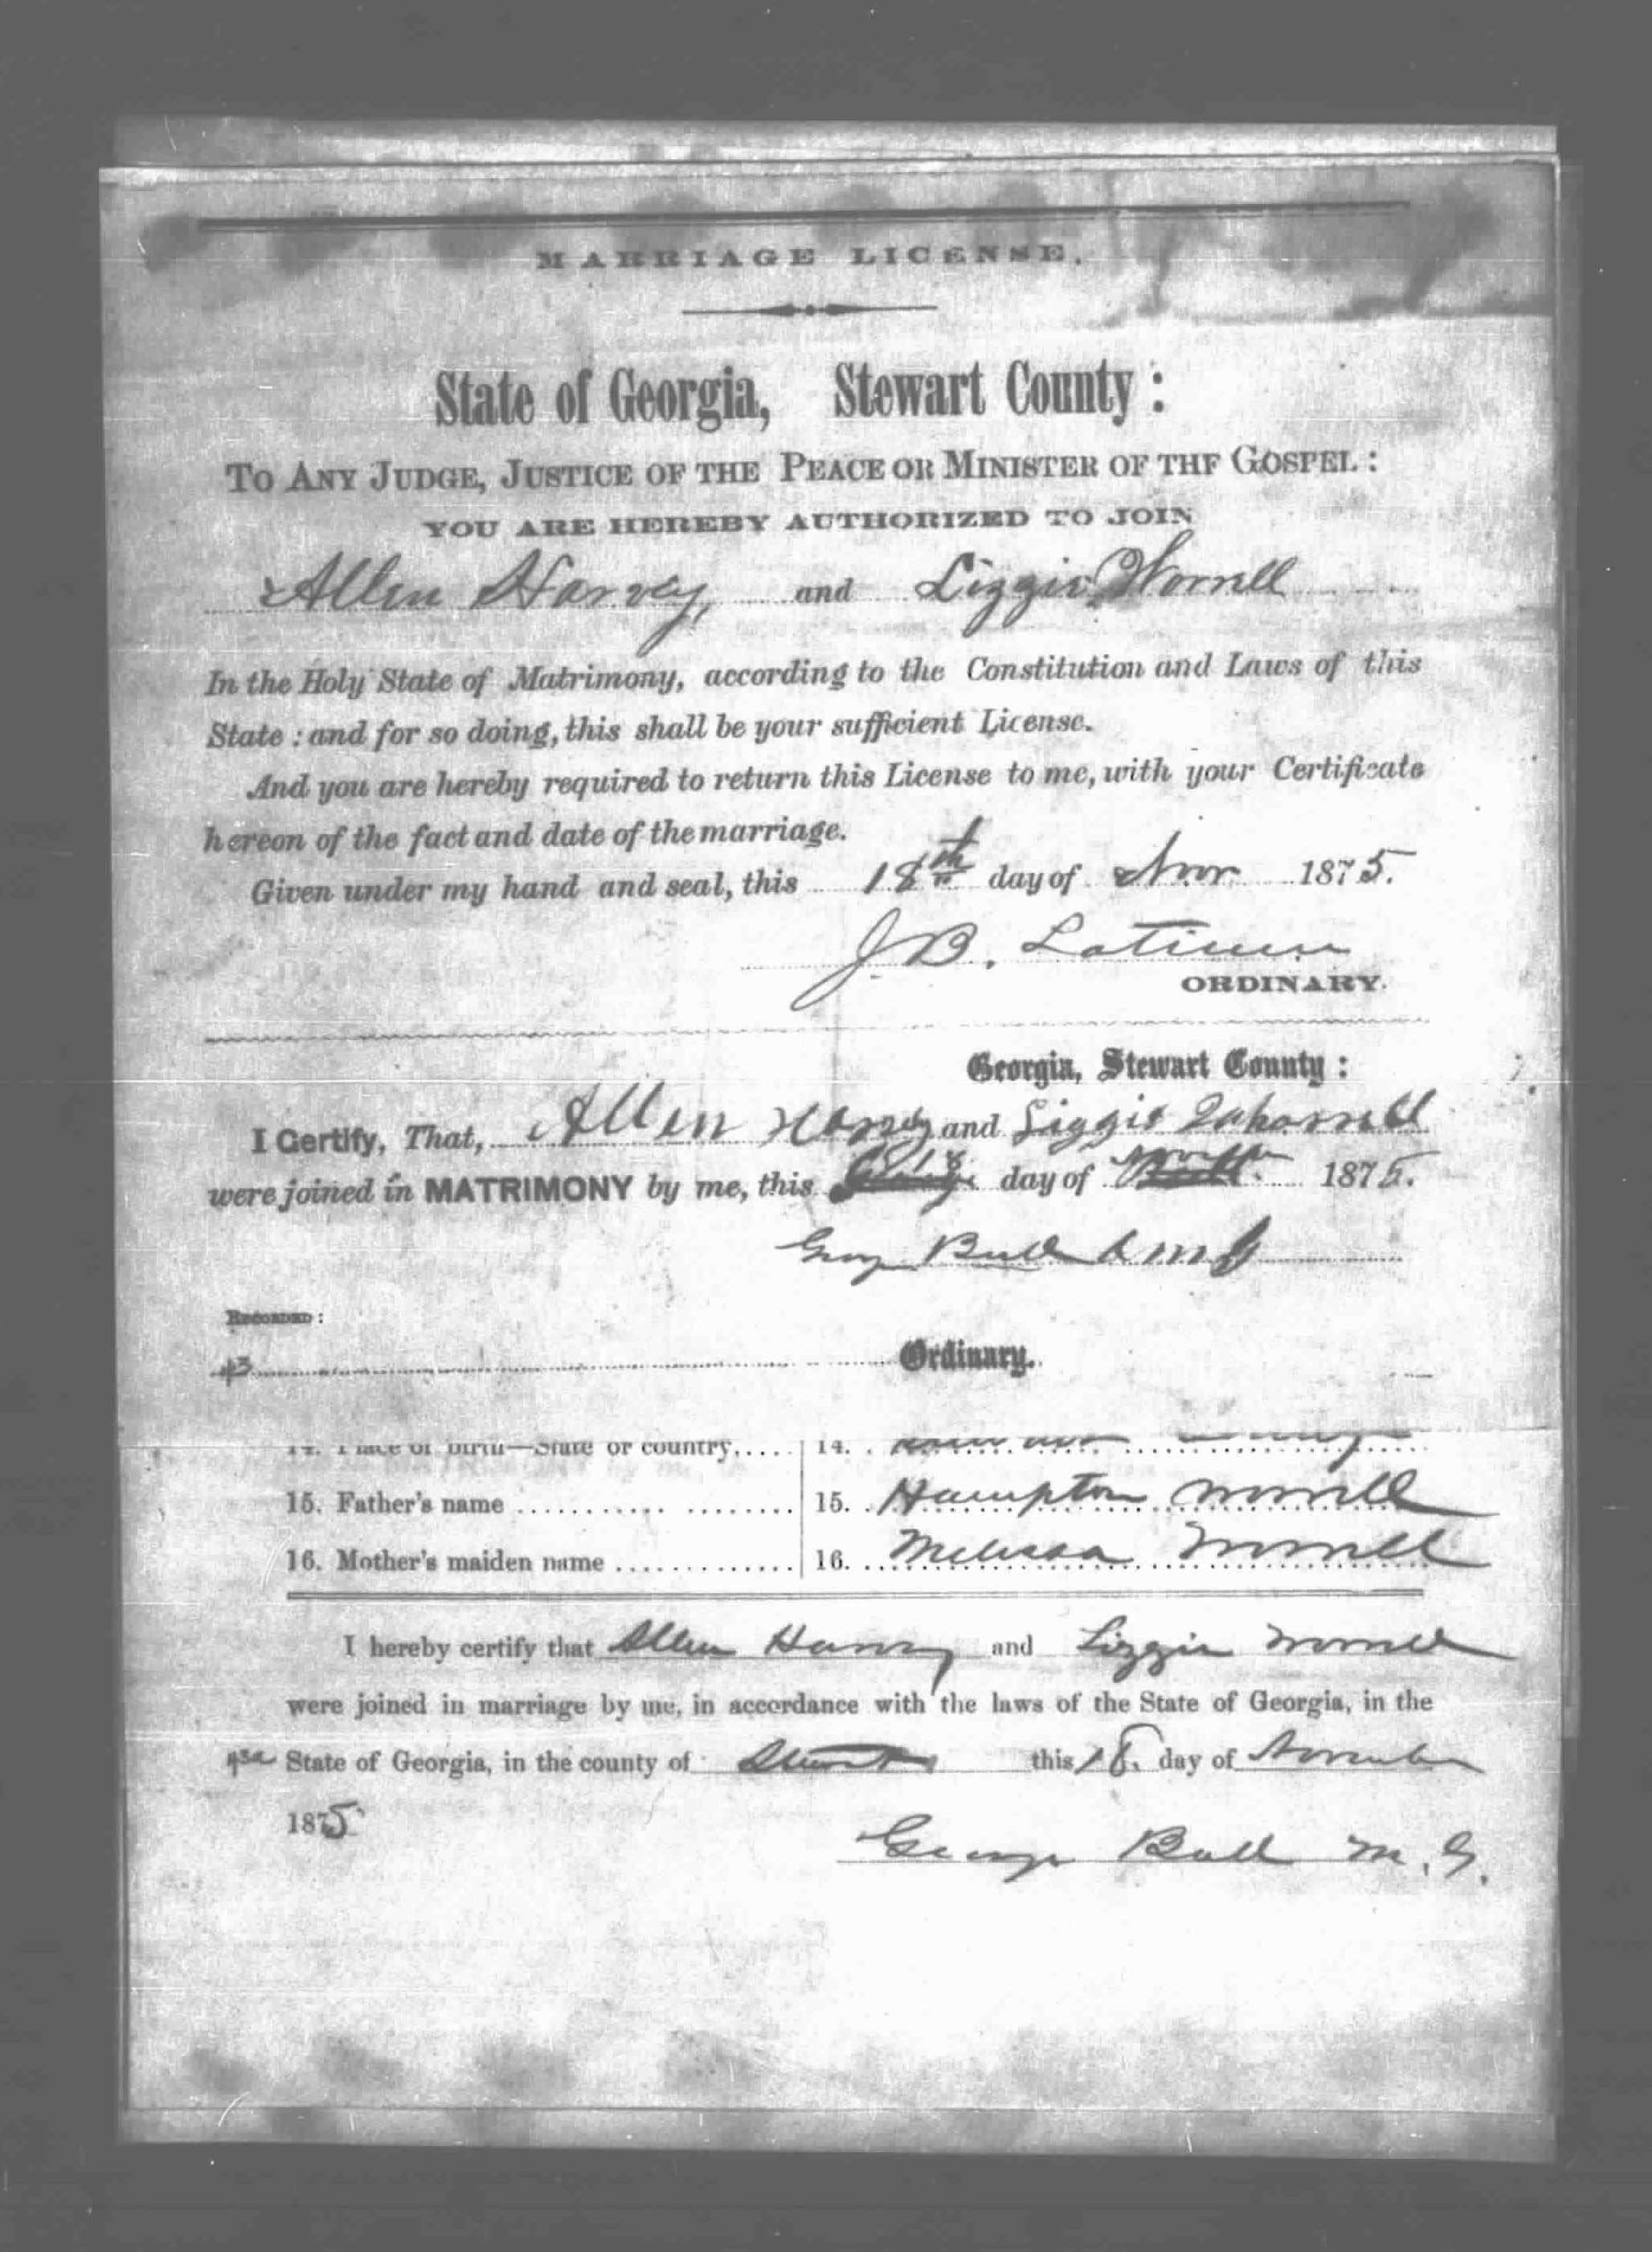 MARRIAGE LICENSE.
State of Georgia, Stewart County :
TO ANY JUDGE, JUSTICE OF THE PEACE OR MINISTER OF THF GOSPEL :
YOU ARE HEREBY AUTHORIZED TO JOIN
Allen Harvey, and Lizzie Worrell
In the Holy State of Matrimony, according to the Constitution and Laws of this
State : and for so doing, this shall be your sufficient License.
And you are hereby required to return this License to me, with your Certificate
hereon of the fact and date of the marriage.
Given under my hand and seal, this 18th day of Nov 1875.
J. B. Latimer
ORDINARY.
Georgia, Stewart County :
I Certify, That, Allen Harvey and Lizzie
were joined in MATRIMONY by me, this 18 day of 1875.
RECORDED :
43 Ordinary.
14. Place of birth—State or country..... 14.
15. Father's name 15. Hampton Worrell
16. Mother's maiden name 16. Melissa Worrell
I hereby certify that Allen Harvey and Lizzie Worrell
were joined in marriage by me, in accordance with the laws of the State of Georgia, in the
43a State of Georgia, in the county of Stewart this 18. day of November
1875
George Ball M. G.